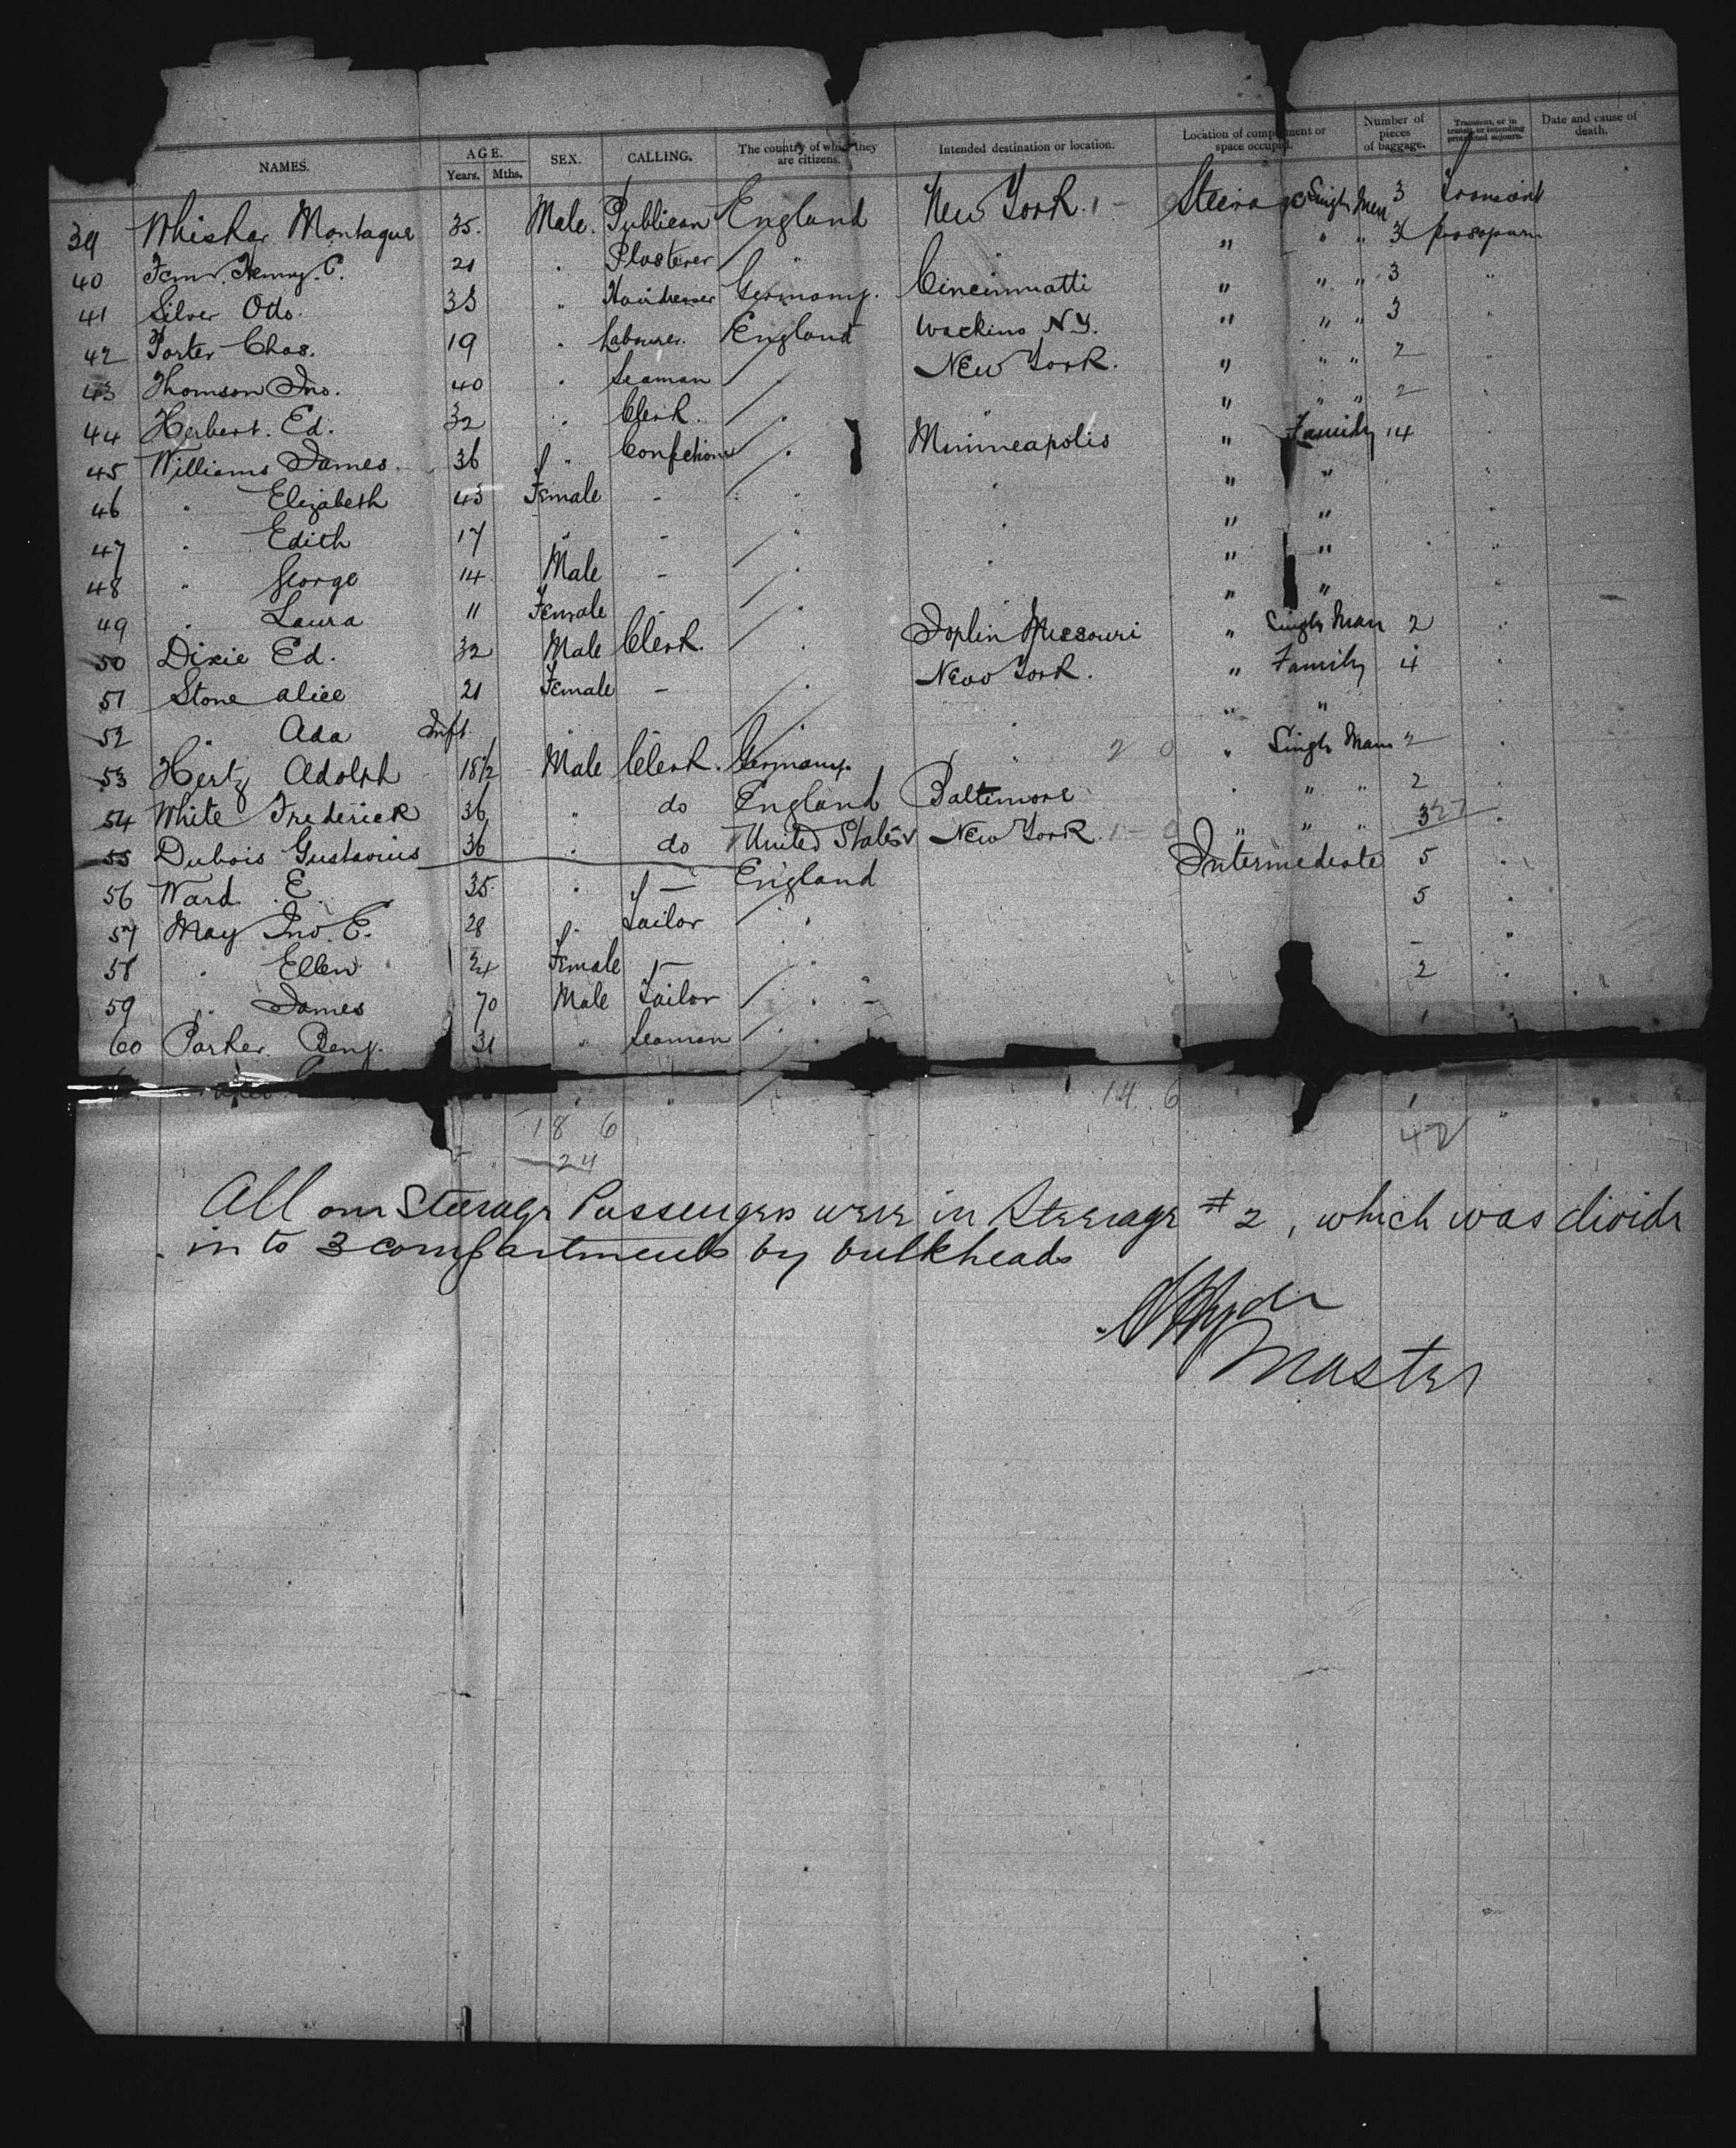 NAMES. AGE. Years. Mths. SEX. CALLING. The country of which they are citizens. Intended destination or location. Location of compartment or space occupied. Number of pieces of baggage. Transient, or in transit, or intending protracted sojourn. Date and cause of death.
39 Whisker Montague 35. Male. Publican England New York. 1 - Steerage Single Men 3
40 Henry. C. 21 . Plasterer " " " " 3
41 Silver Otto. 33 " Hairdresser Germany. Cincinnatti " " " 3 "
42 Porter Chas. 19 . Labourer. England N.Y. " " " 3 "
43 Thomson Jno. 40 . Seaman / . New York. " " " 2 "
44 Herbert. Ed. 32 . Clerk. / . " " " " 2 "
45 Williams James. 36 " Confectioner / . Minneapolis " Family 14 "
46 " Elizabeth 43 Female - " " " " "
47 " Edith 17 " - " " " " "
48 " George 14 Male - / . " " "
49 " Laura 11 Female - / . " " "
50 Dixie Ed. 32 Male Clerk. / . Joplin Missouri " Single Man 2 "
51 Stone Alice 21 Female - / . New York. " Family 4 "
52 " Ada Inft " / . " " " "
53 Hertz Adolph 18 1/2 Male Clerk. Germany. " 2 0 " Single Man 2 "
54 White Frederick 36 " do England Baltimore " " " 2 "
55 Dubois Gustavius 36 " do United States v New York. 1 - 0 " " " 3 "
56 Ward E. 35. " - England Intermediate 5 "
57 May Jno. E. 28 " Tailor / . 5 "
58 " Ellen 24 Female - / . - "
59 " James 70 Male Tailor / . 2 "
60 Parker Benj. 31 " Seaman / . 1 "
" " / 14 6 1 "
18 6 42
24
All our Steerage Passengers were in Steerage # 2, which was divide
in to 3 compartments by bulkheads
Master